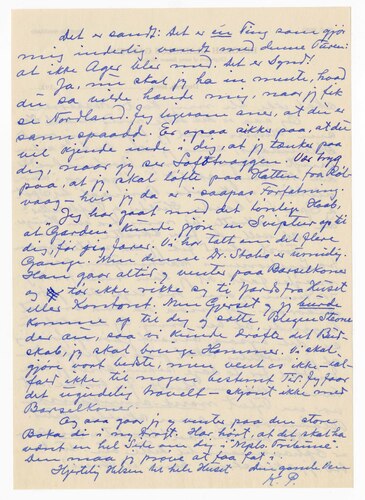 Det er sandt: Det er én Ting som gjør
mig inderlig vondt med denne Turen:
at ikke Ager blir med. Det er Synd!
Ja, nu skal jeg ha in mente, hvad
du sa vilde hænde mig, naar jeg fik
se Nordland. Jeg er aner, at du er
sannspaadd. Er ogsaa sikker paa, at du
vil kjende inde i dig, at jeg tænker paa
dig, naar jeg ser Lofotvæggen. Vær tryg
paa, at jeg skal løfte paa Hatten fra Røl-
vaag – hvis jeg da er i saapas Forfatning.
Jeg har gaat med det Haab,
at "Garden" kunde gjøre en Sviptur op til
dig, før jeg farer. Vi har talt om det flere
Gang. Men denne Dr. Stabo er umulig.
Han gaar altid og venter paa Barselkoner
og tør ikke rikke sig ti Yards fra Huset
eller Kontoret. Men Gjerset og jeg kunde
komme op til dig og sætte Blegen Stevne
der om, saa vi kunde drøfte det Bud-
skab, jeg skal bringe Hammer. Vi skal
gjøre vort bedste, men vent os ikke – ial-
fald ikke til nogen bestemt Tid. Jeg har
det ugudelig travelt – skjønt ikke med
Barselkoner.
Og saa gaar jeg og venter paa den store
Boka di i mg Frygt. Har hørt, at det skal ha
været en hel Side om dig i "Mpls. Tribune".
Den maa jeg prøve at faa fat i.
Hjertelig Hilsen til hele Huset din gamle Ven
K. P.